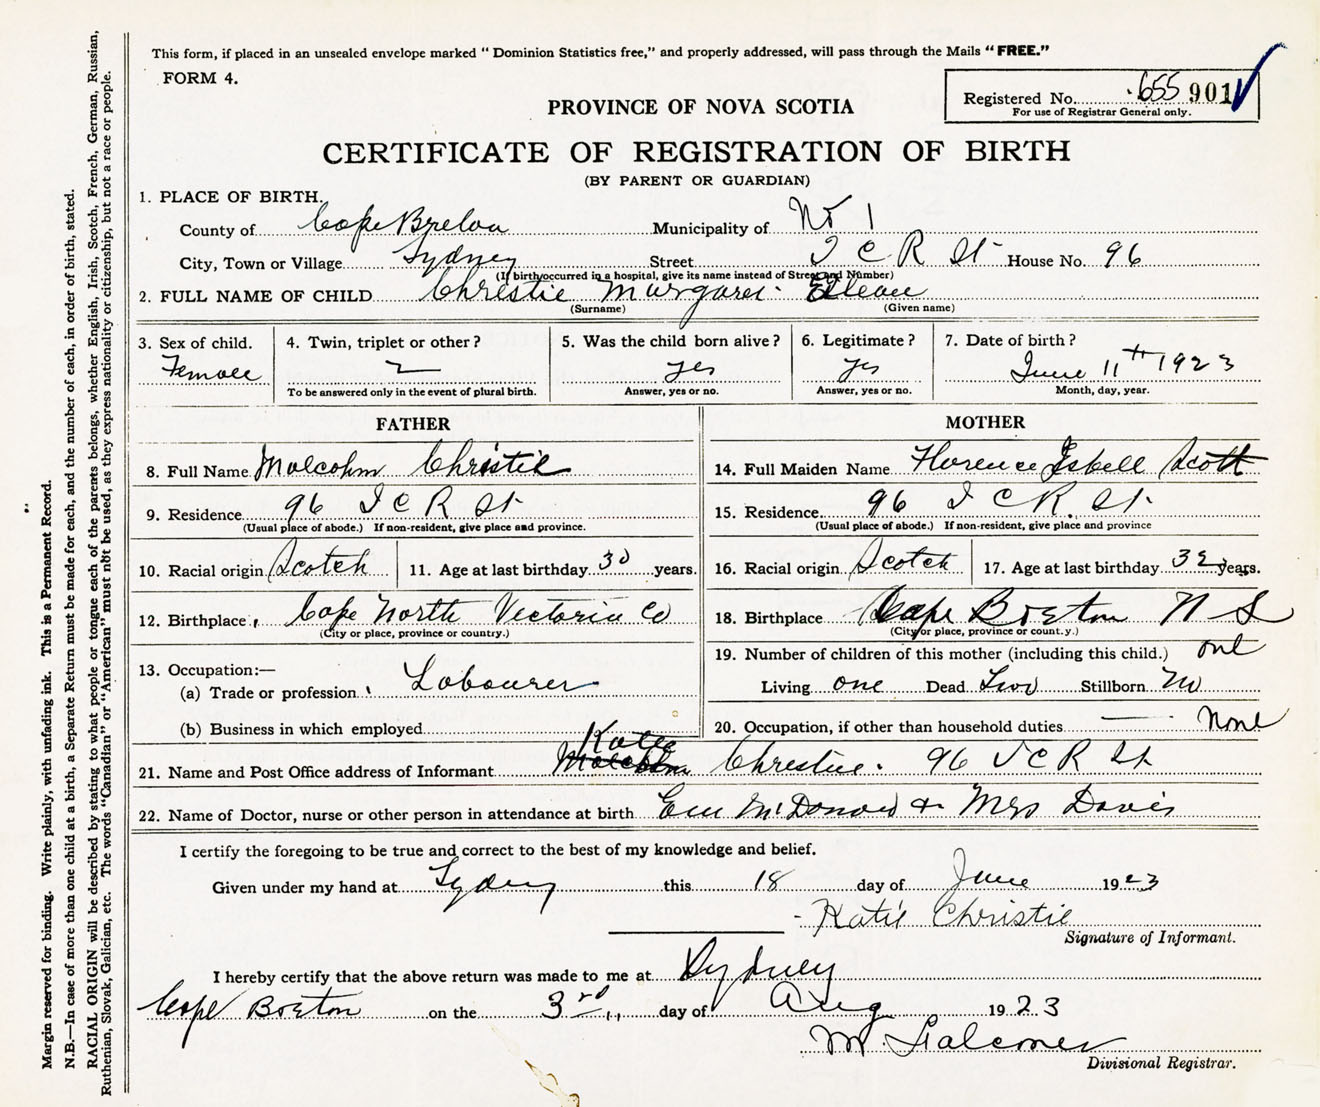 This form, if placed in an unsealed envelope marked "Dominion Statistics free," and properly addressed, will pass through the Mails "FREE."
FORM 4.
Registered No. 655 901
For use of Registrar General only.
PROVINCE OF NOVA SCOTIA
CERTIFICATE OF REGISTRATION OF BIRTH
(BY PARENT OR GUARDIAN)
1. PLACE OF BIRTH.
County of Cape Breton Municipality of No 1
City, Town or Village Sydney Street I C R St House No. 96
(If birth occurred in a hospital, give its name instead of Street and Number)
2. FULL NAME OF CHILD Christie Margaret
(Surname) (Given name)
3. Sex of child. 4. Twin, triplet or other? 5. Was the child born alive? 6. Legitimate? 7. Date of birth?
Female yes yes June 11th 1923
To be answered only in the event of plural birth. Answer, yes or no. Answer, yes or no. Month, day, year.
FATHER MOTHER
8. Full Name Malcohm Christie 14. Full Maiden Name Florence Isbell Scott
9. Residence 96 I C R St 15. Residence 96 I C R. St.
(Usual place of abode.) If non-resident, give place and province. (Usual place of abode.) If non-resident, give place and province
10. Racial origin Scotch 11. Age at last birthday 30 years. 16. Racial origin Scotch 17. Age at last birthday 32 years.
12. Birthplace Cape North Victoria Co 18. Birthplace Cape Breton N S
(City or place, province or country.) (City or place, province or count.y.)
13. Occupation:— 19. Number of children of this mother (including this child.) one
(a) Trade or profession Labourer Living one Dead Two Stillborn No
(b) Business in which employed 20. Occupation, if other than household duties None
Katie
21. Name and Post Office address of Informant Malcohm Christie. 96 I C R St
22. Name of Doctor, nurse or other person in attendance at birth McDonald + Mrs Davis
I certify the foregoing to be true and correct to the best of my knowledge and belief.
Given under my hand at Sydney this 18 day of June 1923
Katie Christie
Signature of Informant.
I hereby certify that the above return was made to me at Sydney
Cape Breton on the 3rd day of Aug 1923
M.
Divisional Registrar.
Margin reserved for binding. Write plainly, with unfading ink. This is a Permanent Record.
N.B.—In case of more than one child at a birth, a Separate Return must be made for each, and the number of each, in order of birth, stated.
RACIAL ORIGIN will be described by stating to what people or tongue each of the parents belongs, whether English, Irish, Scotch, French, German, Russian,
Ruthenian, Slovak, Galician, etc. The words "Canadian" or "American" must not be used, as they express nationality or citizenship, but not a race or people.